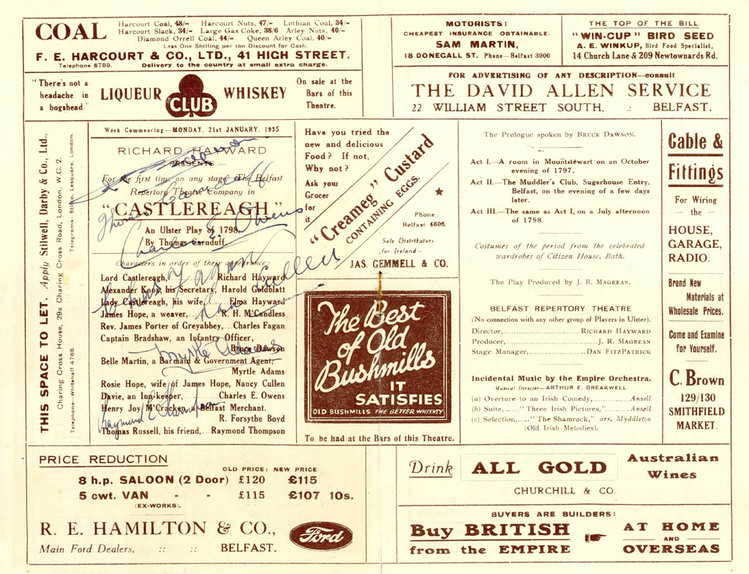 COAL
Harcourt Coal, 48/- Harcourt Nuts, 47/- Lothian Coal, 34/-
Harcourt Slack, 34/- Large Gas Coke, 38/6 Arley Nuts, 40/-
Diamond Orrell Coal, 44/- Queen Arley Coal, 40/-
Less One Shilling per ton Discount for Cash.
F. E. HARCOURT & CO., LTD., 41 HIGH STREET.
Telephone 6789. Delivery to the country at small extra charge.
MOTORISTS!
CHEAPEST INSURANCE OBTAINABLE.
SAM MARTIN,
18 DONEGALL ST. Phone—Belfast 3900
THE TOP OF THE BILL
"WIN-CUP" BIRD SEED
A. E. WINKUP, Bird Food Specialist,
14 Church Lane & 209 Newtownards Rd.
"There's not a
headache in
a hogshead."
LIQUEUR CLUB WHISKEY
On sale at the
Bars of this
Theatre.
FOR ADVERTISING OF ANY DESCRIPTION—consult
THE DAVID ALLEN SERVICE
22 WILLIAM STREET SOUTH, .: BELFAST.
THIS SPACE TO LET. Apply Stilwell, Darby & Co., Ltd.,
Charing Cross House, 29a Charing Cross Road, London, W.C. 2.
Telephone—Whitehall 4768. Telegrams Stilad, Lesquare, London.
Week Commencing—MONDAY, 21st JANUARY, 1935
RICHARD HAYWARD
PRESENTS
For the first time on any stage the Belfast
Repertory Theatre Company in
"CASTLEREAGH"
An Ulster Play of 1798
By Thomas Carnduff
Characters in order of their appearance:
Lord Castlereagh, Richard Hayward
Alexander Knox, his Secretary, Harold Goldblatt
Lady Castlereagh, his wife Elma Hayward
James Hope, a weaver, R. H. McCandless
Rev. James Porter of Greyabbey, Charles Fagan
Captain Bradshaw, an Infantry Officer,
Bruce Dawson
Belle Martin, a Barmaid & Government Agent,
Myrtle Adams
Rosie Hope, wife of James Hope, Nancy Cullen
Davie, an Inn-keeper, Charles E. Owens
Henry Joy M'Cracken, Belfast Merchant.
R. Forsythe Boyd
Thomas Russell, his friend, Raymond Thompson
Thomas Carnduff
Charles E. Owens
Myrtle Adams
Raymond Thompson
Have you tried the
new and delicious
Food? If not,
Why not?
Ask you
Grocer
for
it
"Creameg" Custard
CONTAINING EGGS.
Phone
Belfast 4606.
Sole Distributors
for Ireland:
JAS. GEMMELL & CO.
The Best
of Old
Bushmills
IT
SATISFIES
OLD BUSHMILLS THE BETTER WHISKEY
To be had at the Bars of this Theatre.
The Prologue spoken by BRUCE DAWSON.
Act I.—A room in Mountstewart on an October
evening of 1797.
Act II.—The Muddler's Club, Sugarhouse Entry,
Belfast, on the evening of a few days
later.
Act III.—The same as Act I, on a July afternoon
of 1798.
Costumes of the period from the celebrated
wardrobes of Citizen House, Bath.
The Play Produced by J. R. MAGEEAN.
BELFAST REPERTORY THEATRE
(No connection with any other group of Players in Ulster).
Director, RICHARD HAYWARD
Producer, J. R. MAGEEAN
Stage Manager, DAN FITZPATRICK
Incidental Music by the Empire Orchestra.
Musical Director—ARTHUR E. BREAKWELL
(a) Overture to an Irish Comedy, Ansell
(b) Suite, "Three Irish Pictures," Ansell
(c) Selection, "The Shamrock," arr. Myddleton
(Old Irish Melodies).
Cable &
Fittings
For Wiring
the
HOUSE,
GARAGE,
RADIO.
Brand New
Materials at
Wholesale Prices.
Come and Examine
for Yourself.
C. Brown
129/130
SMITHFIELD
MARKET.
PRICE REDUCTION
OLD PRICE: NEW PRICE
8 h.p. SALOON (2 Door) £120 £115
5 cwt. VAN - - £115 £107 10s.
(EX-WORKS).
R. E. HAMILTON & CO.,
Main Ford Dealers, :: :: BELFAST.
Ford
Drink ALL GOLD Australian
Wines
CHURCHILL & CO.
BUYERS ARE BUILDERS!
Buy BRITISH
from the EMPIRE
AT HOME
AND
OVERSEAS